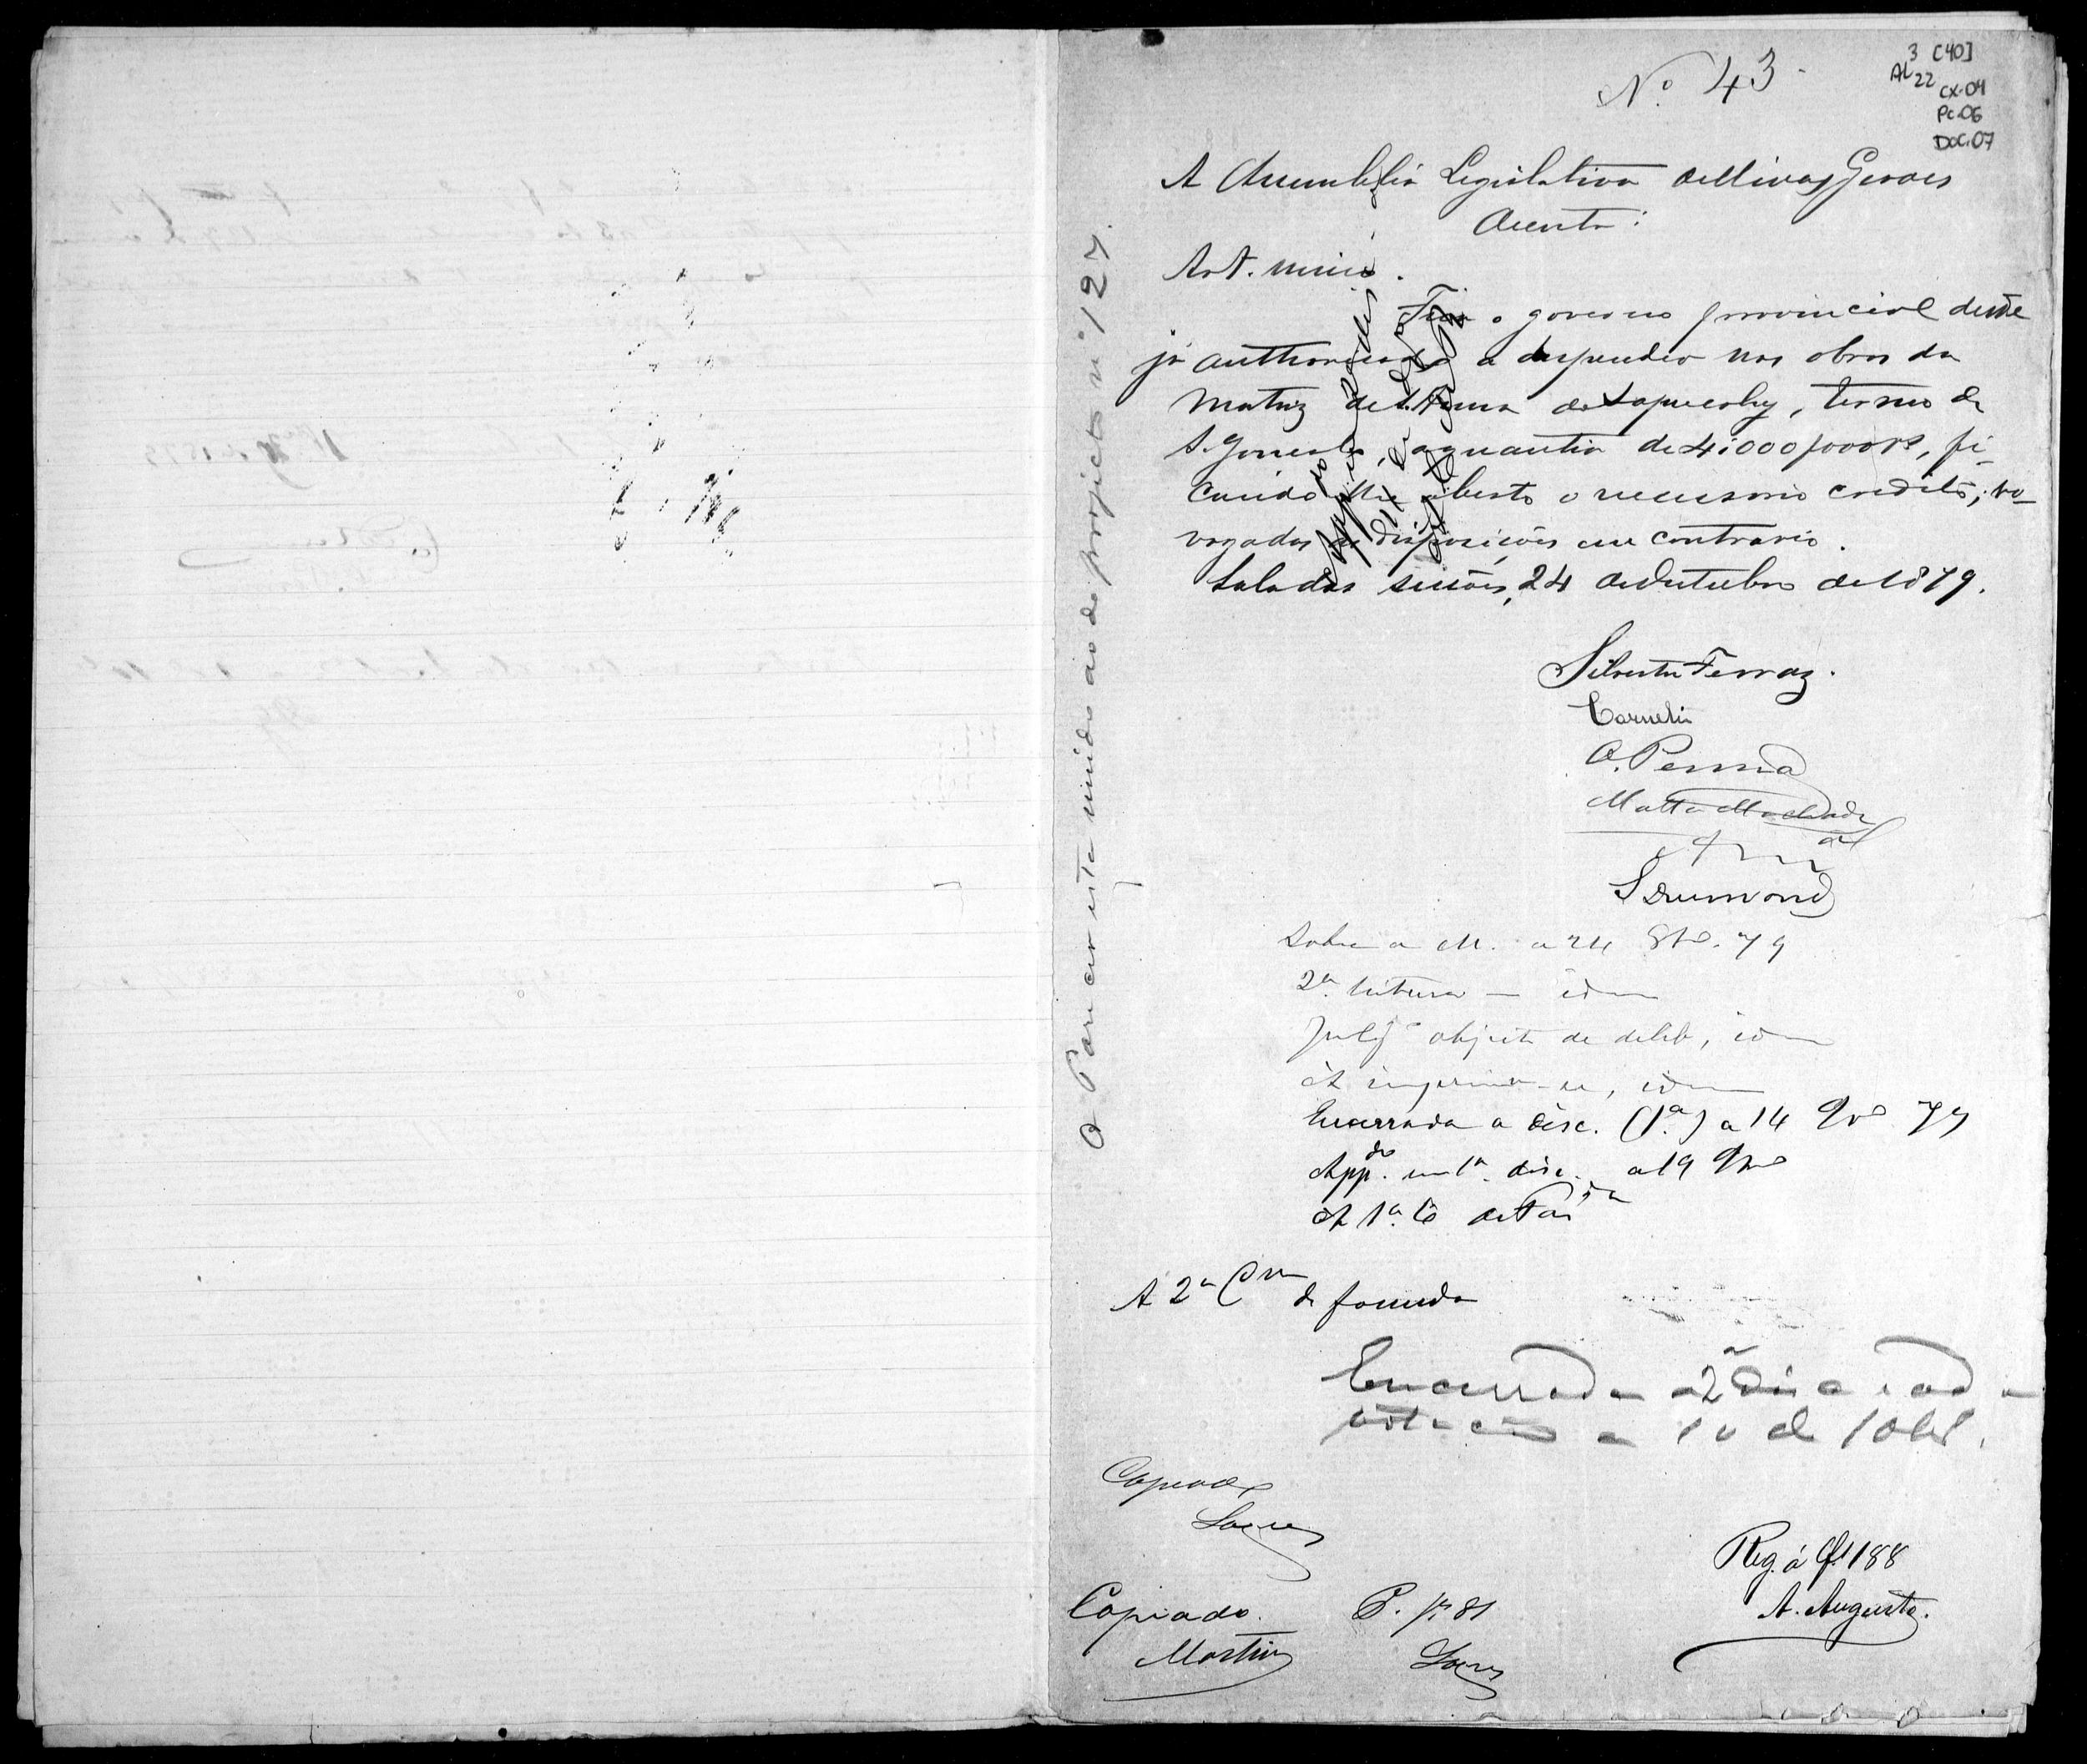 Nº 43
3 [40]
AL 22
CX-04
PC-06
DOC.07
A Assembléa Legislativa de Minas Geraes
decreta:
Art. unico.
Fica o governo provincial desde
já authorisado a despender nas obras da
Matriz de S. Anna de Sapucahy, termo de
S. Gonçalo, a quantia de 4:000$000 rs, fi-
cando lhe aberto o necessario credito; re-
vogadas as disposições em contrario.
Sala das sessões, 24 de Outubro de 1879.
Silvestre Ferraz.
Cornelio
O. Penna
Matta Machado
Drumond
O Parecer esta unido ao do projecto nº 127.
Sobre a M. a 24 8bro. 79
2ª leitura — idem
Julgº objecto de delib, idem
A imprimir-se, idem
Encerrada a disc. (1ª.) a 14 9bro 79
Appdo. em 1ª. disc. a 19 9bro
A 2ª Com de fazenda
Encerrada a 2ª disc e ad a
votação a 10 de 10br.
Copiado
Copiado.
Martins
P. fs 81
Reg. á fl 188
A. Augusto.